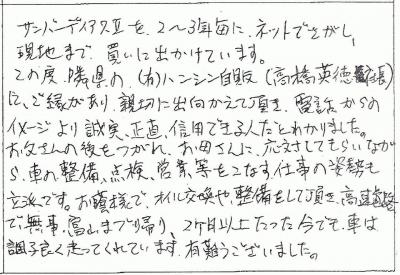 サンバーディアスⅡを、2～3年毎に、ネットでさがし、
現地まで、買いに出かけています。
この度、隣県の(有)ハンシン自販(高橋英徳
に、ご縁があり、親切に出向かえて頂き、電話からの
イメージより誠実、正直、信用できる人だとわかりました。
お父さんの後をつがれ、お母さんに、応対してもらいなが
ら、車の整備、点検、営業、等をこなす仕事の姿勢も
立派です。お蔭様で、オイル交換や、整備をして頂き、高速道路
で無事、富山まで帰り、2ケ月以上たった今でも、車は
調子良く走ってくれています。有難うございました。